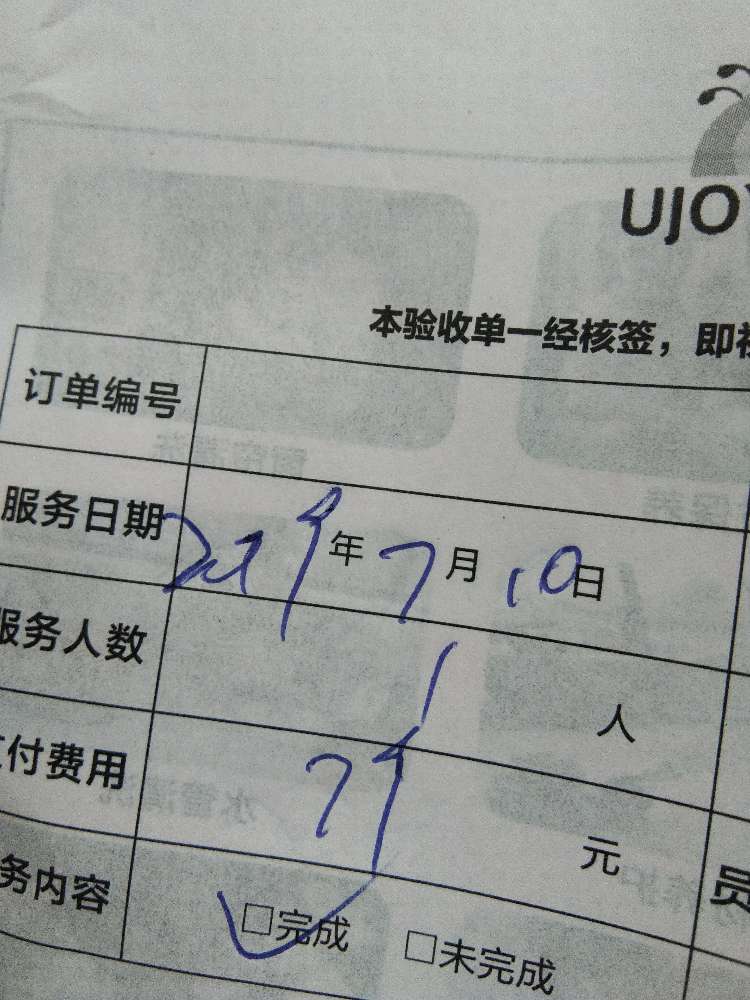 UJOY
本验收单一经核签，即视
订单编号
服务日期 2019年7月10日
服务人数 1人
支付费用 79元
服务内容 □完成 □未完成
员